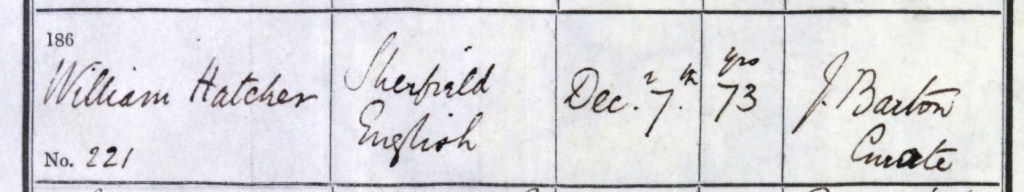 186
William Hatcher
No. 221
Sherfield
English
Decr. 7th.
73 yrs
J. Barton
Curate